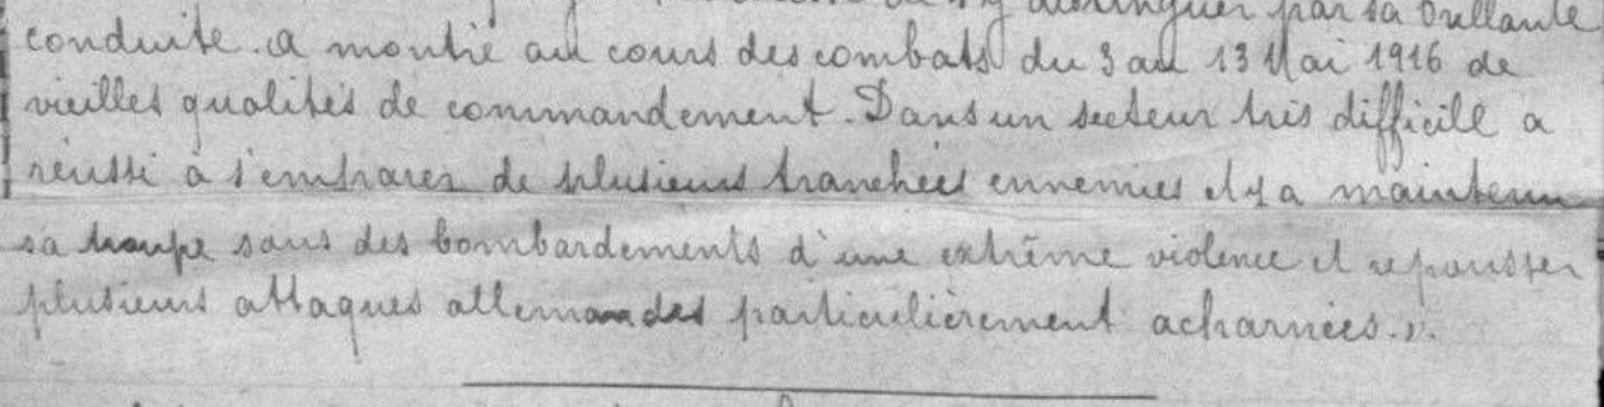 distinguer par sa brillante
conduite. a montré au cours des combats du 3 au 13 Mai 1916 de
vieilles qualités de commandement. Dans un secteur très difficile a
réussi à s'emparer de plusieurs tranchées ennemies et y a maintenu
sa troupe sous des bombardements d'une extrême violence et repousser
plusieurs attaques allemandes particulièrement acharnées.».